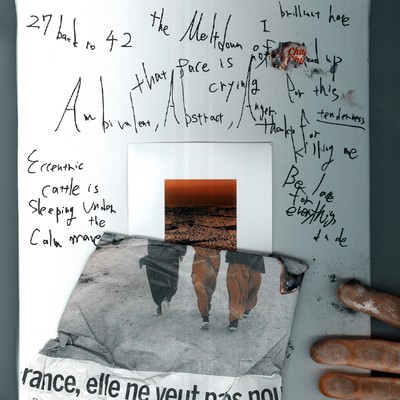 27 back to 42
the Meltdown of
I
brilliant have
that face is not
crying
for this
Ambivalent, Abstract, Anger
tenderness
thanks for
killing me
Be love
for
everything
Eccentric
cattle is
Sleeping under
the
Calm wave
rance, elle ne veut pas nou